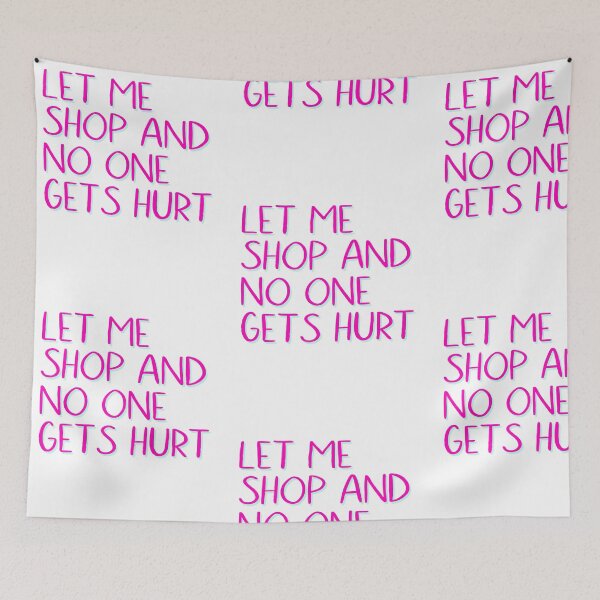 LET ME
SHOP AND
NO ONE
GETS HURT
GETS HURT
LET ME
SHOP
NO ONE
GETS HU
LET ME
SHOP AND
NO ONE
GETS HURT
LET ME
SHOP AND
NO ONE
GETS HURT
LET ME
SHOP
NO ONE
GETS HU
LET ME
SHOP AND
NO ONE